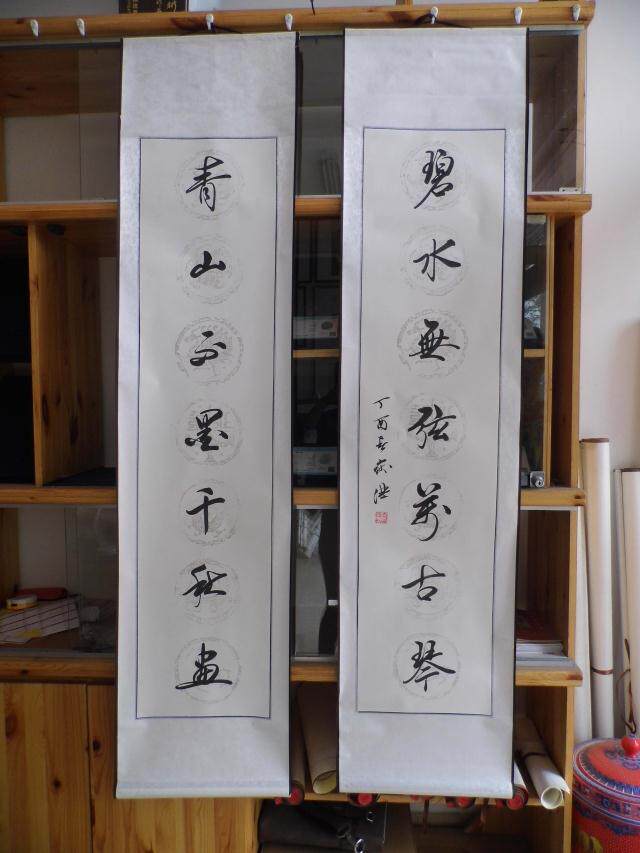 青山不墨千秋畫
碧水無弦萬古琴
丁酉春